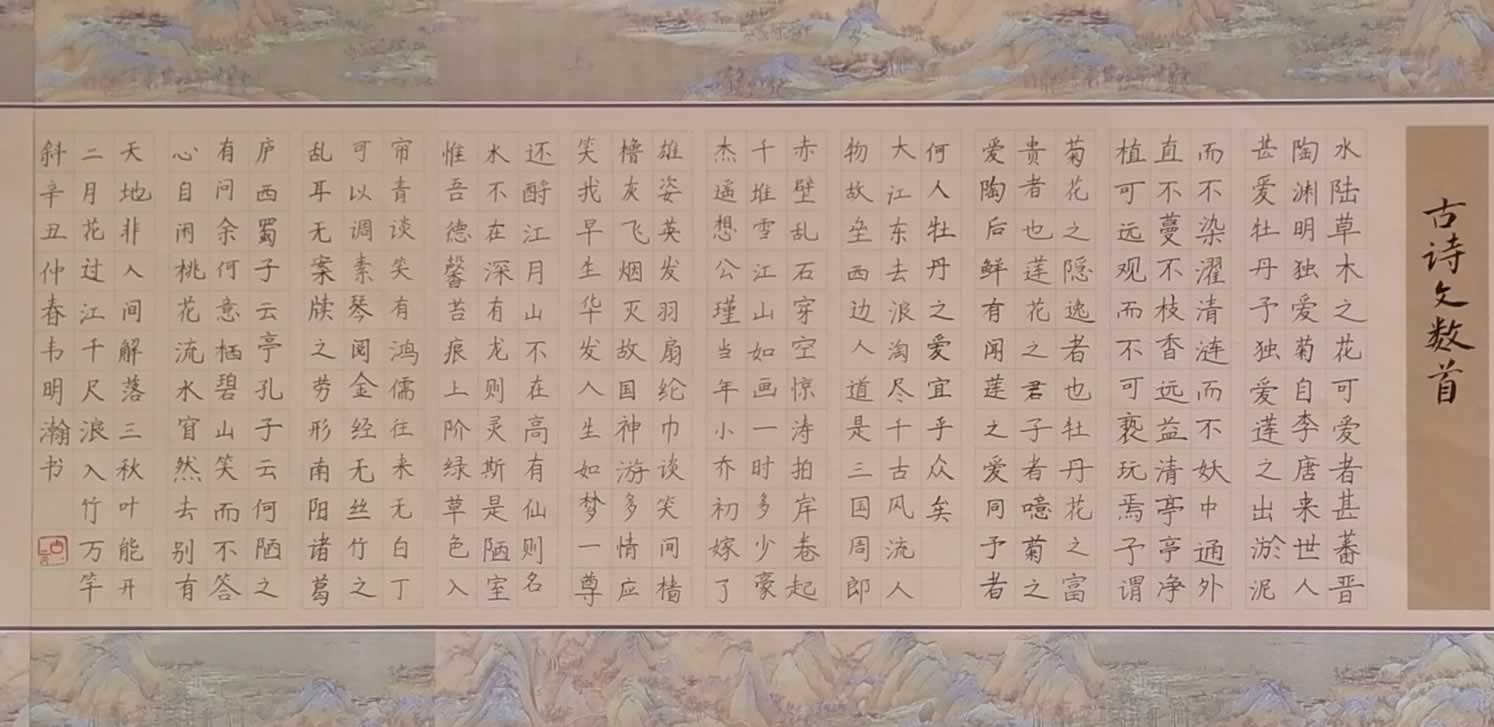 古诗文数首
水陆草木之花可爱者甚蕃晋
陶渊明独爱菊自李唐来世人
甚爱牡丹予独爱莲之出淤泥
而不染濯清涟而不妖中通外
直不蔓不枝香远益清亭亭净
植可远观而不可亵玩焉予谓
菊花之隐逸者也牡丹花之富
贵者也莲花之君子者噫菊之
爱陶后鲜有闻莲之爱同予者
何人牡丹之爱宜乎众矣
大江东去浪淘尽千古风流人
物故垒西边人道是三国周郎
赤壁乱石穿空惊涛拍岸卷起
千堆雪江山如画一时多少豪
杰遥想公瑾当年小乔初嫁了
雄姿英发羽扇纶巾谈笑间樯
橹灰飞烟灭故国神游多情应
笑我早生华发人生如梦一尊
还酹江月山不在高有仙则名
水不在深有龙则灵斯是陋室
惟吾德馨苔痕上阶绿草色入
帘青谈笑有鸿儒往来无白丁
可以调素琴阅金经无丝竹之
乱耳无案牍之劳形南阳诸葛
庐西蜀子云亭孔子云何陋之
有问余何意栖碧山笑而不答
心自闲桃花流水窅然去别有
天地非人间解落三秋叶能开
二月花过江千尺浪入竹万竿
斜辛丑仲春韦明瀚书